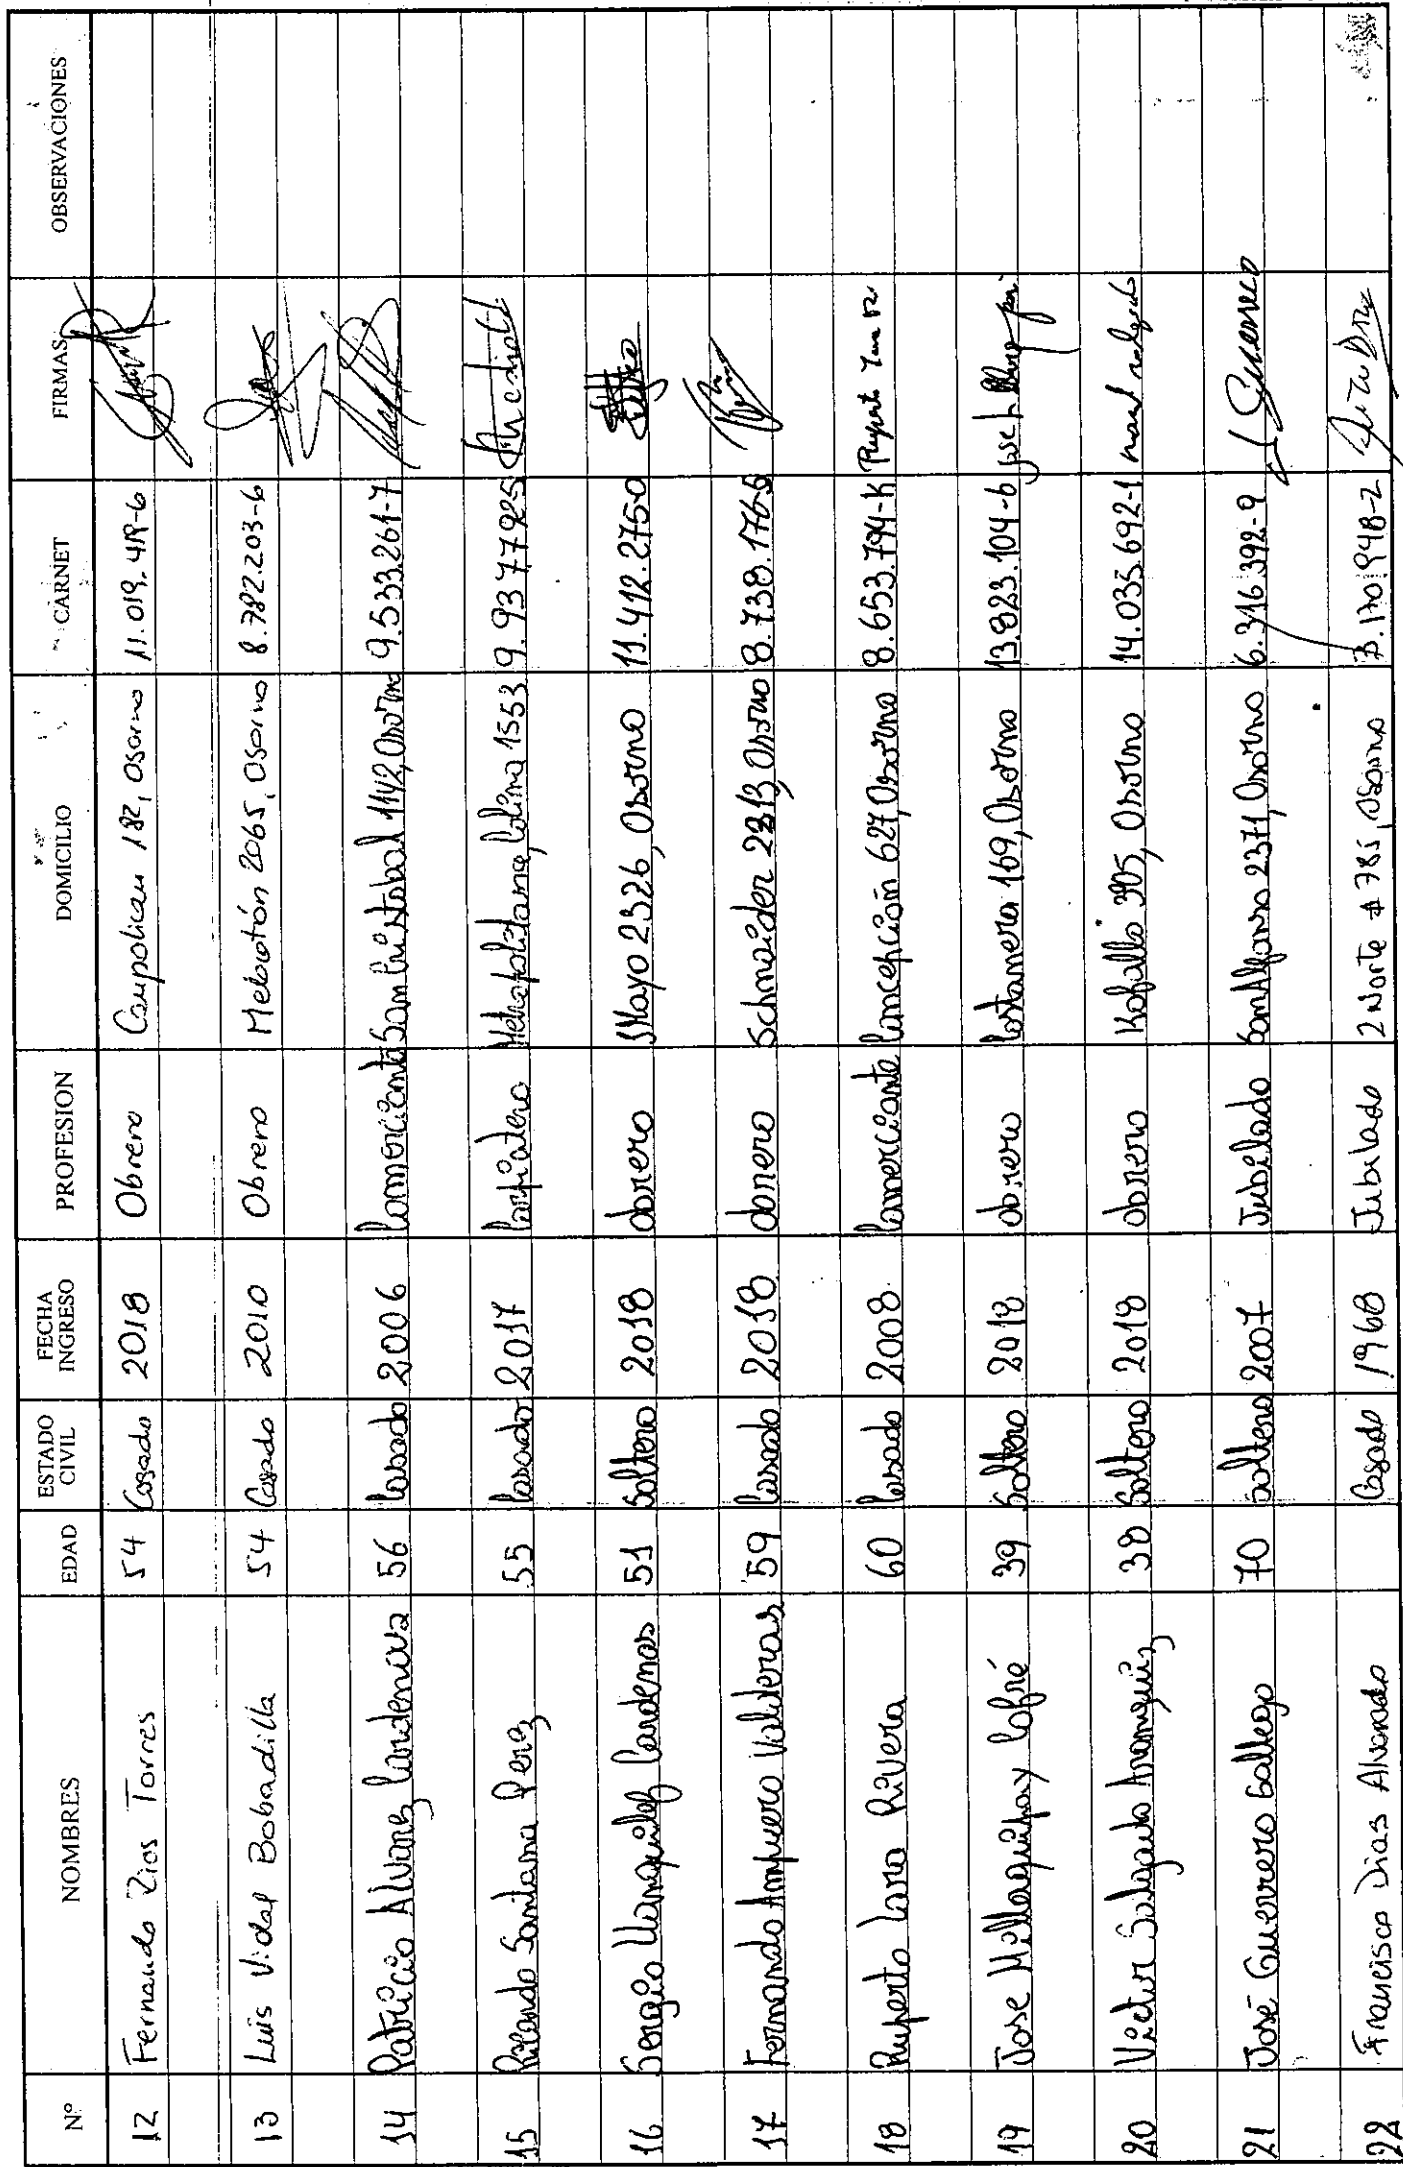 Nº NOMBRES EDAD ESTADO CIVIL FECHA INGRESO PROFESION DOMICILIO CARNET FIRMAS OBSERVACIONES
12 Fernando Rios Torres 54 Casado 2018 Obrero Caupolican 182, Osorno
13 Luis Vidal Bobadilla 54 Casado 2010 Obrero 2065, Osorno 8.782.203-6
14 Patricio Alvarez 56 Casado 2006 Comerciante San Cristobal 1142, Osorno 9.533.261-7
15 Santana Perez 55 Casado 2017 Metropolitana, Colina 1553 9.937.798-5
16 Sergio Cardenas 51 Soltero 2018 obrero Mayo 2326, Osorno 11.412.275-0
17 Fernando Ampuero Valderas 59 Casado 2018 obrero Schnaider 2213, Osorno 8.738.176-5
18 Ruperto Lara Rivera 60 Casado 2008 Comerciante Concepción 627, Osorno 8.653.794-K
19 Jose Millaquipay Cofré 39 Soltero 2018 obrero Costanera 169, Osorno 13.823.104-6
20 Victor Salgado 38 Soltero 2018 obrero 305, Osorno 14.035.692-1
21 José Guerrero Gallego 70 Soltero 2007 Jubilado San Alfonso 2371, Osorno 6.316.392-9 Guerrero
22 Francisco Dias Alvarado Casado 1968 Jubilado 2 Norte # 785, Osorno 3.170.948-2